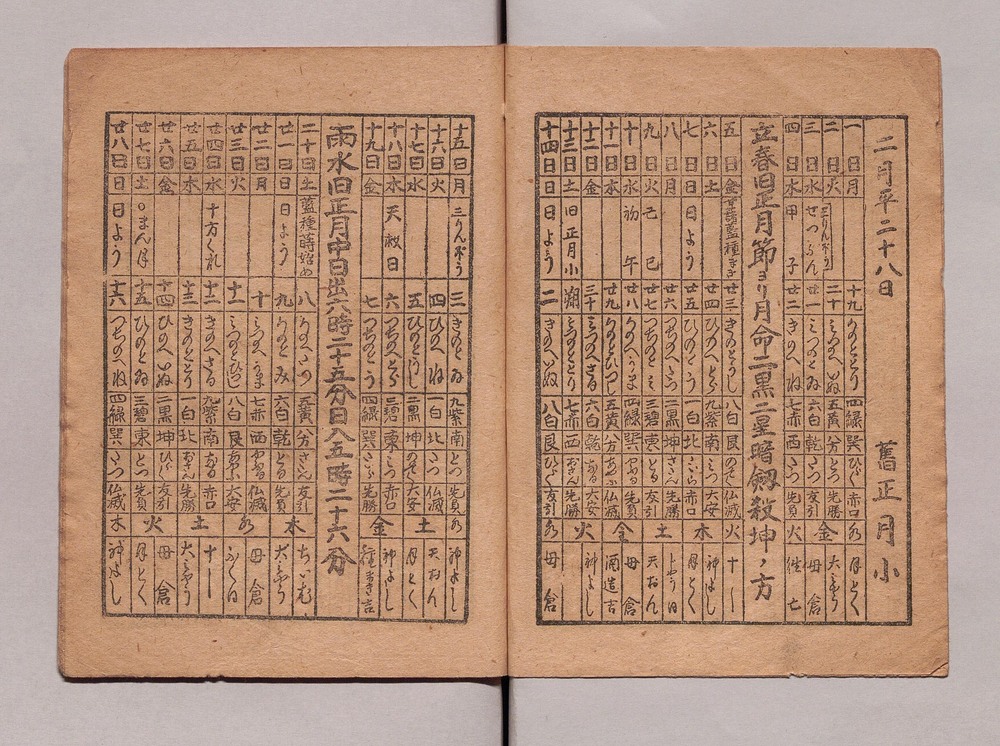 二月平二十八日 舊正月小
一日月 十九 かのととり 四緑 巽 ひらく 赤口 水 月とく
二日火 三りんぼう 二十 みづのへいぬ 五黄 分 とづ 先勝 金 大みやう
三日水 せつぶん 廿一 みづのとゐ 六白 乾 たつ 友引 母倉
四日木 甲子 廿二 きのへね 七赤 西 たつ 先負 火 往亡
立春旧正月節ヨリ月命二黒二星暗剱殺坤ノ方
五日金 廿三 きのとうし 八白 艮 のぞく 仏滅 火 十し
六日土 廿四 ひのへとら 九紫 南 みつ 大安 神よし
七日日 日よう 廿五 ひのとう 一白 北 たいら 赤口 木 月とく
八日月 廿六 つちのへたつ 二黒 坤 さだん 先勝 上う日
九日火 己巳 廿七 つちのとみ 三碧 東 とる 友引 土 天おん
十日水 初午 廿八 かのへうま 四緑 巽 やぶる 先負 母倉
十一日木 廿九 かのとひつじ 五黄 分 あやぶ 仏滅 金 酒造吉
十二日金 三十 みづのへさる 六白 乾 なる 大安 神よし
十三日土 旧正月小 朔 みづのととり 七赤 西 おさん 先勝 火
十四日日 日よう 二 きのへいぬ 八白 艮 ひらく 友引 水 母倉
十五日月 三りんぼう 三 きのとゐ 九紫 南 とづ 先負 水 神よし
十六日火 四 ひのへね 一白 北 たつ 仏滅 土 天おん
十七日水 五 ひのとうし 二黒 坤 のぞく 大安 月とく
十八日木 天赦日 六 つちのへとら 三碧 東 みつ 赤口 金 神よし
十九日金 七 つちのとう 四緑 巽 たいら 先勝 種まき吉
雨水旧正月中日出六時二十五分日入五時二十六分
二十日土 藍種蒔始め 八 かのへたつ 五黄 分 さだん 友引 木 ちいむ
廿一日日 日よう 九 かのとみ 六白 乾 とる 先負 大みやう
廿二日月 十 みづのへうま 七赤 西 やぶる 仏滅 水 母倉
廿三日火 十一 みづのとひつじ 八白 艮 あやぶ 大安 ふく日
廿四日水 十方くれ 十二 きのへさる 九紫 南 なる 赤口 土 十し
廿五日木 十三 きのととり 一白 北 おさん 先勝 大みやう
廿六日金 十四 ひのへいぬ 二黒 坤 ひらく 友引 火 母倉
廿七日土 ○まん月 十五 ひのとゐ 三碧 東 とづ 先負 月とく
廿八日日 日よう 十六 つちのへね 四緑 巽 たつ 仏滅 木 神よし